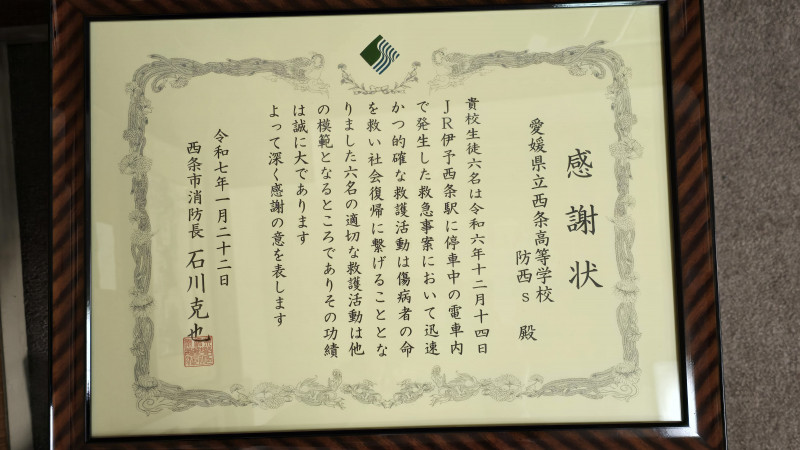 感謝状
愛媛県立西条高等学校
防西s 殿
貴校生徒六名は令和六年十二月十四日
JR伊予西条駅に停車中の電車内
で発生した救急事案において迅速
かつ的確な救護活動は傷病者の命
を救い社会復帰に繋げることとな
りました六名の適切な救護活動は他
の模範となるところでありその功績
は誠に大であります
よって深く感謝の意を表します
令和七年一月二十二日
西条市消防長 石川克也